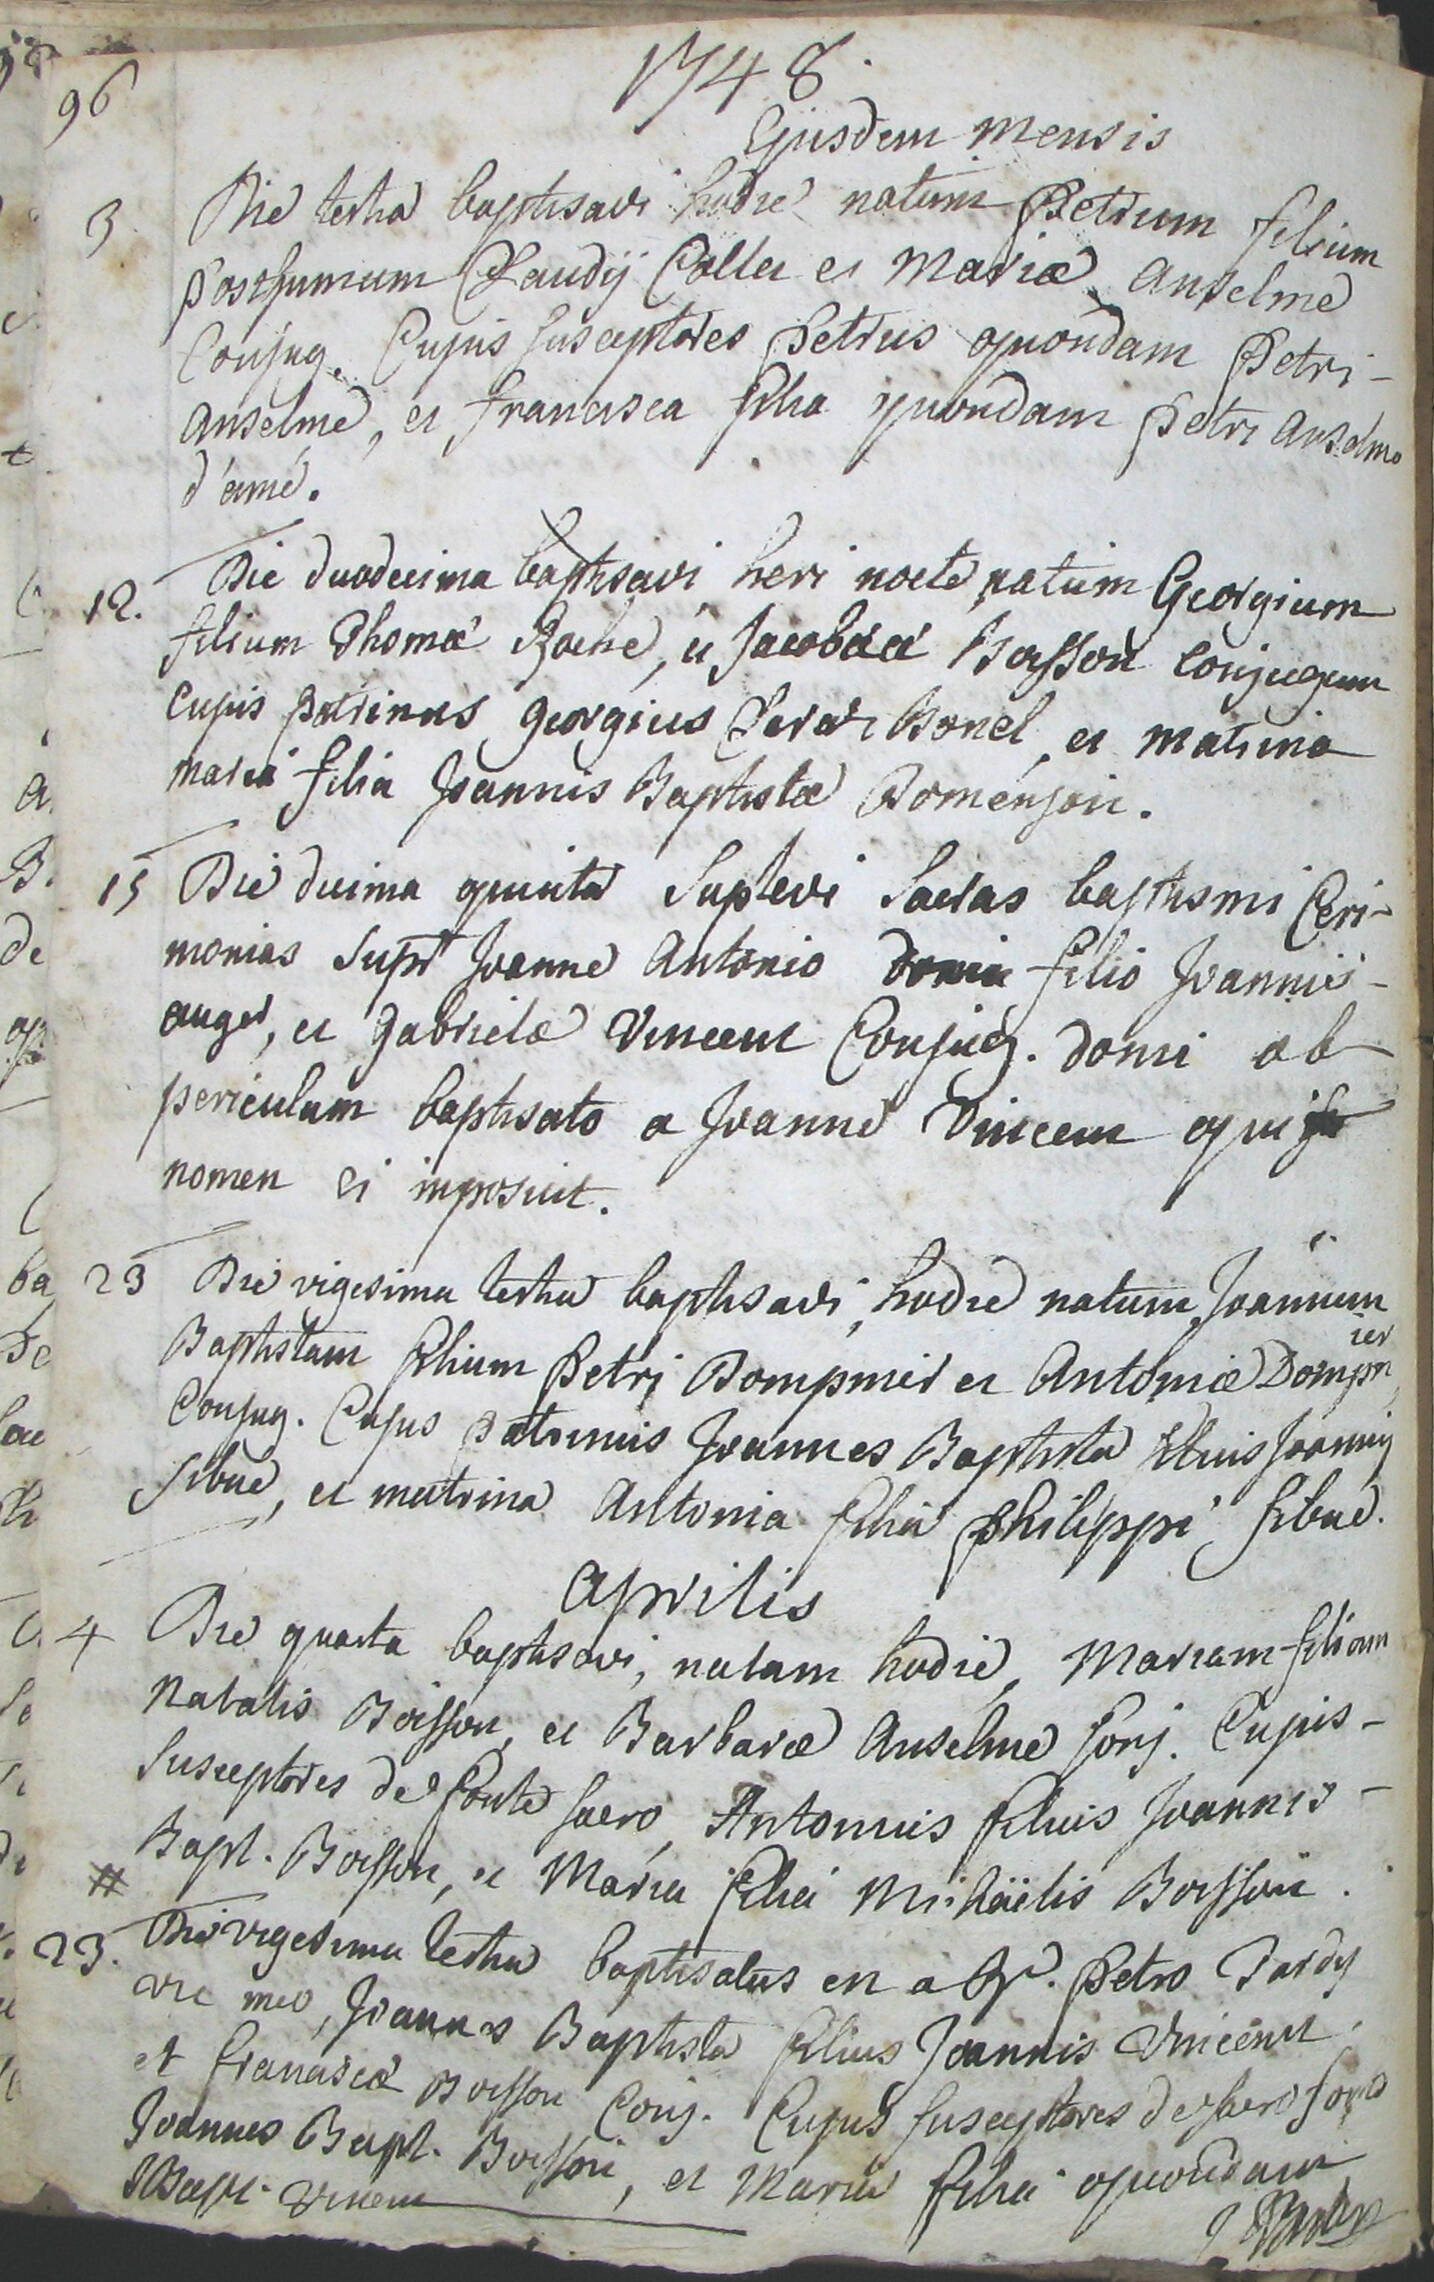 96
1748.
Ejusdem mensis
3. Die tertia baptisavi hodie natum Petrum filium
posthumum Claudij Collet et Mariæ Anselme
Conjug. Cujus susceptores Petrus quondam Petri-
Anselme, et francisca filia quondam Petri Anselme
d'amé.
12. Die duodecima baptisavi heri nocte natum Georgium
filium Thomæ Roche, et Jacobæa Boisson conjugum
cujus patrinus georgius Bonel et matrina
maria filia Joannis Baptistæ Domenjon.
15 Die decima quinta suplevi sacras baptismi Ceri-
monias supr Joanne Antonio filio Joannis-
auger, et gabrielæ Vincent Conjug. domi ob
periculum baptisato a Joanne Vincent qui
nomen ei imposuit.
23 Die vigesima tertia baptisavi, hodie natum Joannem
Baptistam filium Petri Dompnier et Antoniæ Dompnier
Conjug. Cujus patrinus Joannes Baptista filius Joannis
sibué, et matrina Antonia filia philippi sibué.
Aprilis
4 Die quarta baptisavi, natam hodie, Mariam filiam
Natalis Boisson, et Barbaræ Anselme Conj. Cujus-
susceptores de fonte sacro, Antonius filius Joannis-
Bapt. Boisson, et Maria filia Michäelis Boisson.
#
23. Die vigesima tertia baptisatus en a Petro Tardy
vic meo, Joannes Baptista filius Joannis Vincent
et franciscæ Boisson Conj. Cujus susceptores de sacro fonte
Joannes Bapt. Boisson, et Maria filia quondam
Bapt. Vincent